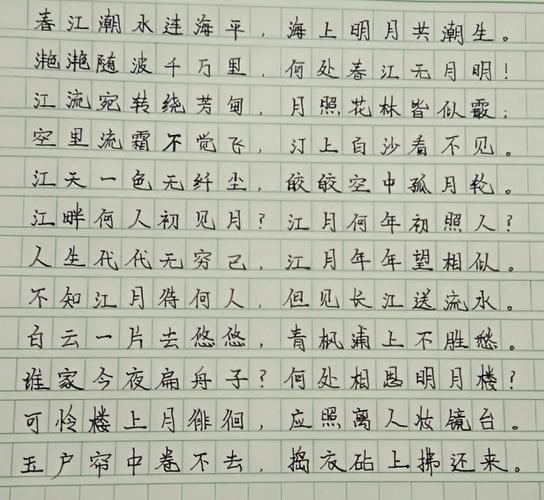 春江潮水连海平，海上明月共潮生。
滟滟随波千万里，何处春江无月明！
江流宛转绕芳甸，月照花林皆似霰；
空里流霜不觉飞，汀上白沙看不见。
江天一色无纤尘，皎皎空中孤月轮。
江畔何人初见月？江月何年初照人？
人生代代无穷已，江月年年望相似。
不知江月待何人，但见长江送流水。
白云一片去悠悠，青枫浦上不胜愁。
谁家今夜扁舟子？何处相思明月楼？
可怜楼上月徘徊，应照离人妆镜台。
玉户帘中卷不去，捣衣砧上拂还来。